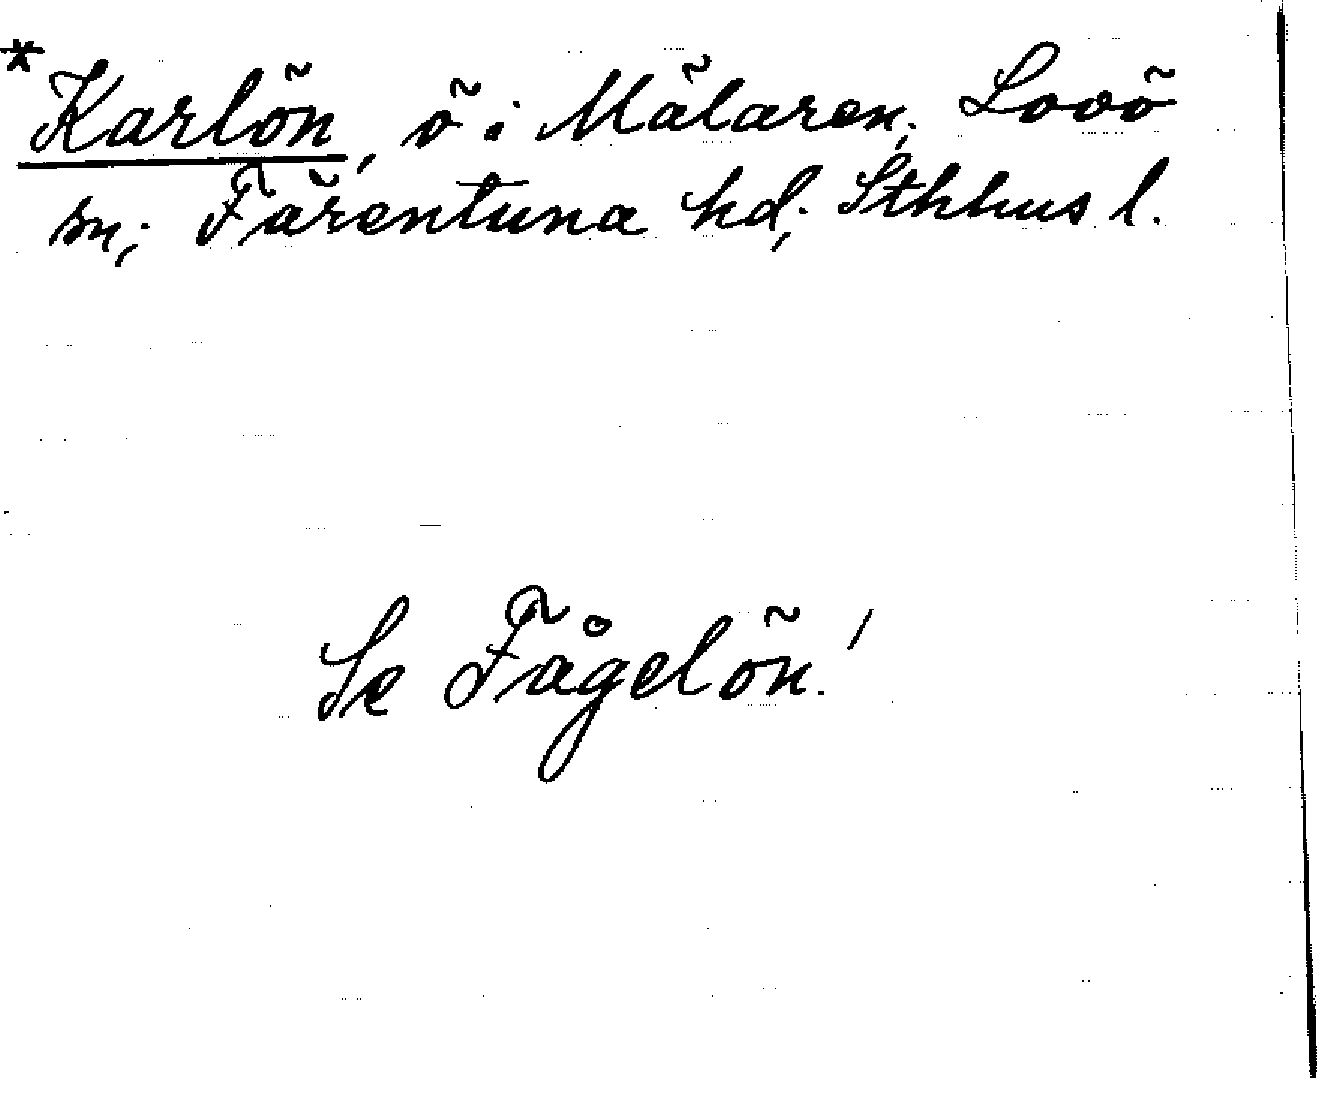 *Karlön, ö i Mälaren, Lovö
sn, Färentuna hd, Sthhus l.
Se Fågelön!